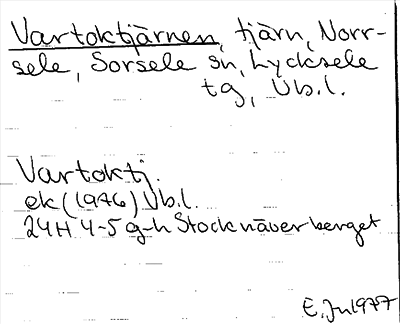 Vartoktjärnen, tjärn, Norr-
sele, Sorsele sn, Lycksele
tg, Vb.l.
Vartoktj.
ek (1976) Vb.l.
24H 4-5 g-h Stocknäverberget
E.Ju 1977